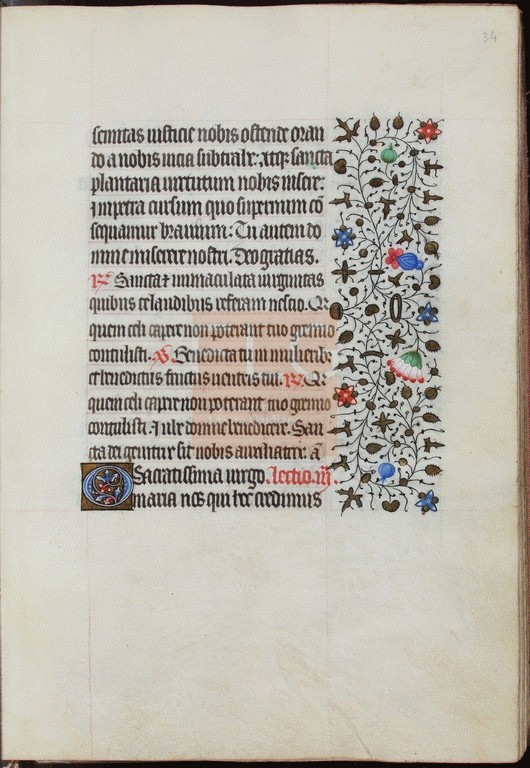 34
semitas iusticie nobis ostende oran
do a nobis uicia subtrahe: atqȝ sancta
plantaria uirtutum nobis insere:
Impetra cursum quo supernum cō
sequamur brauium: Tu autem do
mine miserere nostri. Deo gratias.
℟ Sancta ⁊ immaculata uirginitas
quibus te laudibus referam nescio. Q̄
quem celi capere non poterant tuo gremio
contulisti. ℣ Benedicta tu in mulieribȝ
et benedictus fructus uentris tui. ℟ Q̄
quem celi capere non poterant tuo gremio
contulisti. benedicere. San
cta dei genitrix sit nobis auxiliatrix: ā
O Sacratissima uirgo. lectio .iij.
maria nos qui hec credimus